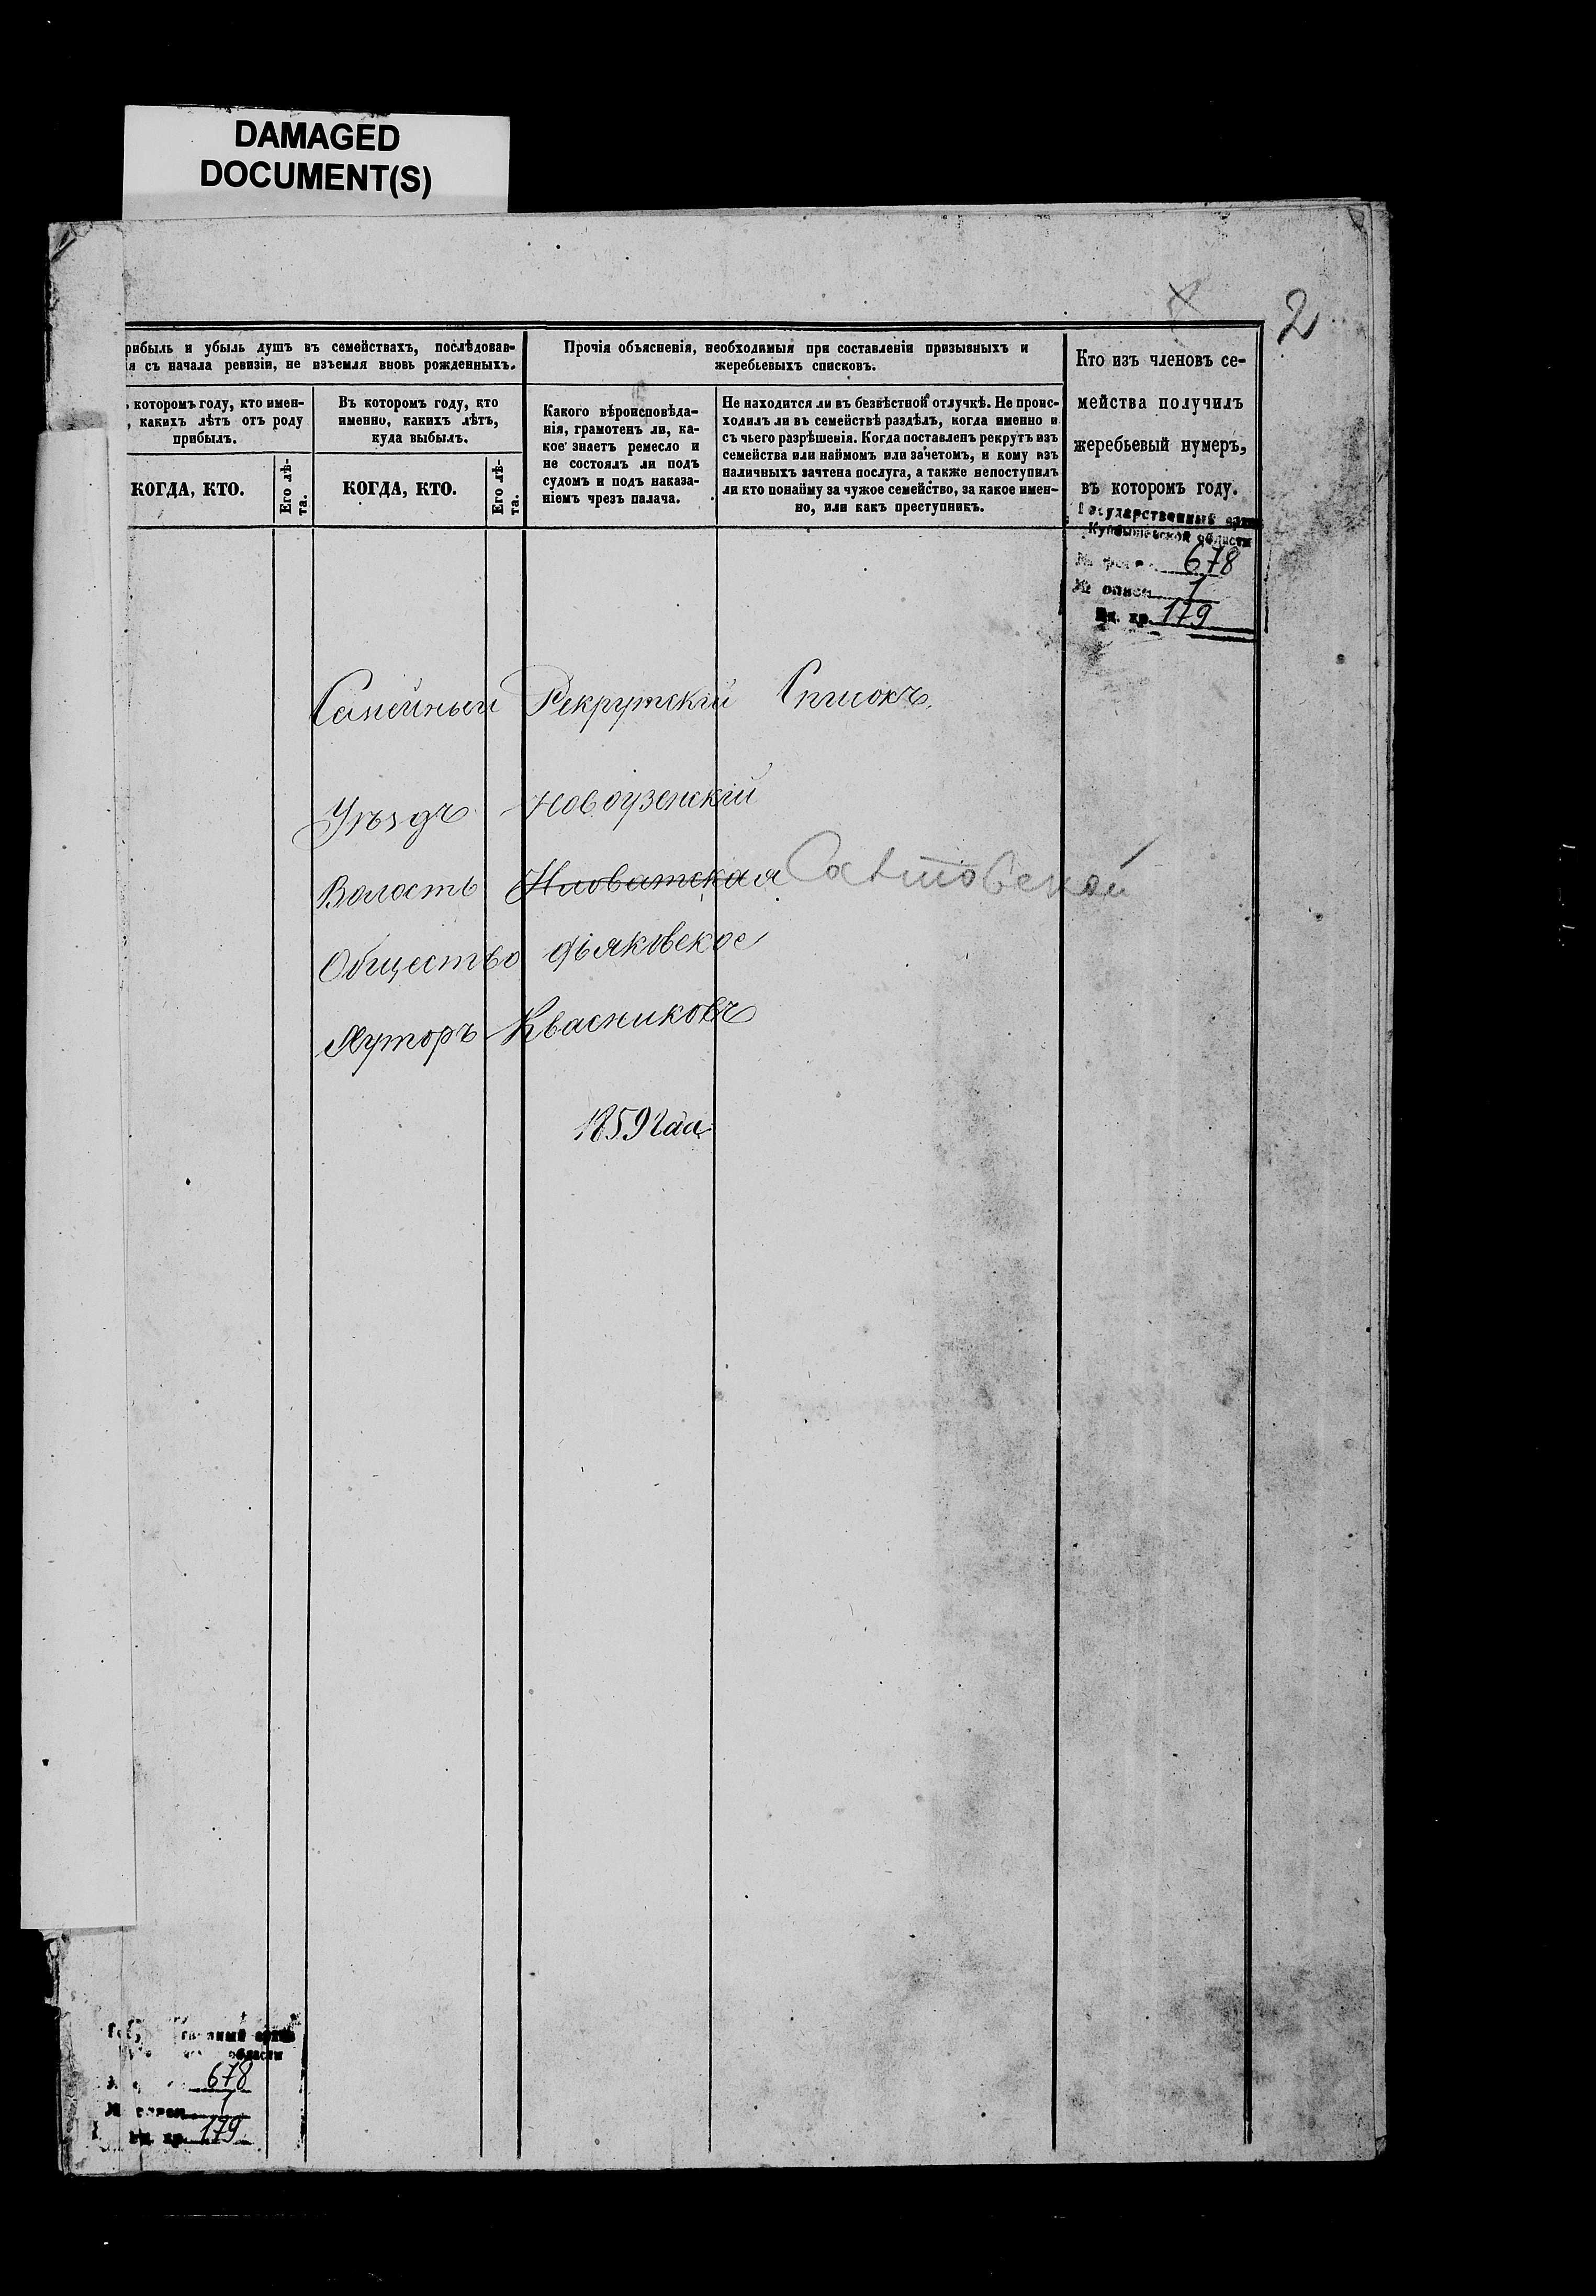 DAMAGED
DOCUMENT(S)
2
рибыль и убыль душъ въ семействахъ, послѣдовав-
я съ начала ревизіи, не изъемля вновь рожденныхъ.
которомъ году, кто имен-
, какихъ лѣтъ отъ роду
прибылъ.
КОГДА, КТО.
Его лѣ-
та.
Въ которомъ году, кто
именно, какихъ лѣтъ,
куда выбылъ.
КОГДА, КТО.
Его лѣ-
та.
Прочія объясненія, необходимыя при составленіи призывныхъ и
жеребьевыхъ списковъ.
Какого вѣроисповѣда-
нія, грамотенъ ли, ка-
кое знаетъ ремесло и
не состоялъ ли подъ
судомъ и подъ наказа-
ніемъ чрезъ палача.
Не находится ли въ безвѣстной отлучкѣ. Не проис-
ходилъ ли въ семействѣ раздѣлъ, когда именно и
съ чьего разрѣшенія. Когда поставленъ рекрутъ изъ
семейства или наймомъ или зачетомъ, и кому изъ
наличныхъ зачтена послуга, а также непоступилъ
ли кто понайму за чужое семейство, за какое имен-
но, или какъ преступникъ.
Кто изъ членовъ се-
мейства получилъ
жеребьевый нумеръ,
въ которомъ году.
Государственный архив
Куйбышевской области
№ фонда 678
№ описи 1
Ед. хр. 179
Семейный Рекрутскій Списокъ.
Уѣздъ Новоузенскій
Волость Иловатская
Общество Дьяковское
Хуторъ Квасниковъ
1859 Года
области
678
№ описи 1
Ед. хр. 179